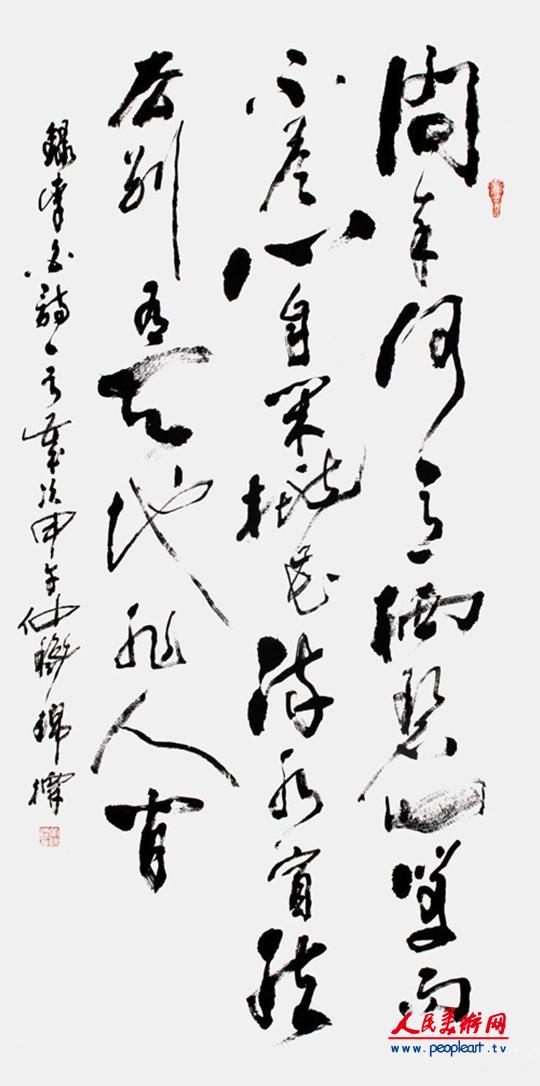 問余何意栖碧山笑而
不答心自閑桃花流水窅然
去別有天地非人間
錄李白詩一首歲次甲午仲秋
人民美術网
www.peopleart.tv